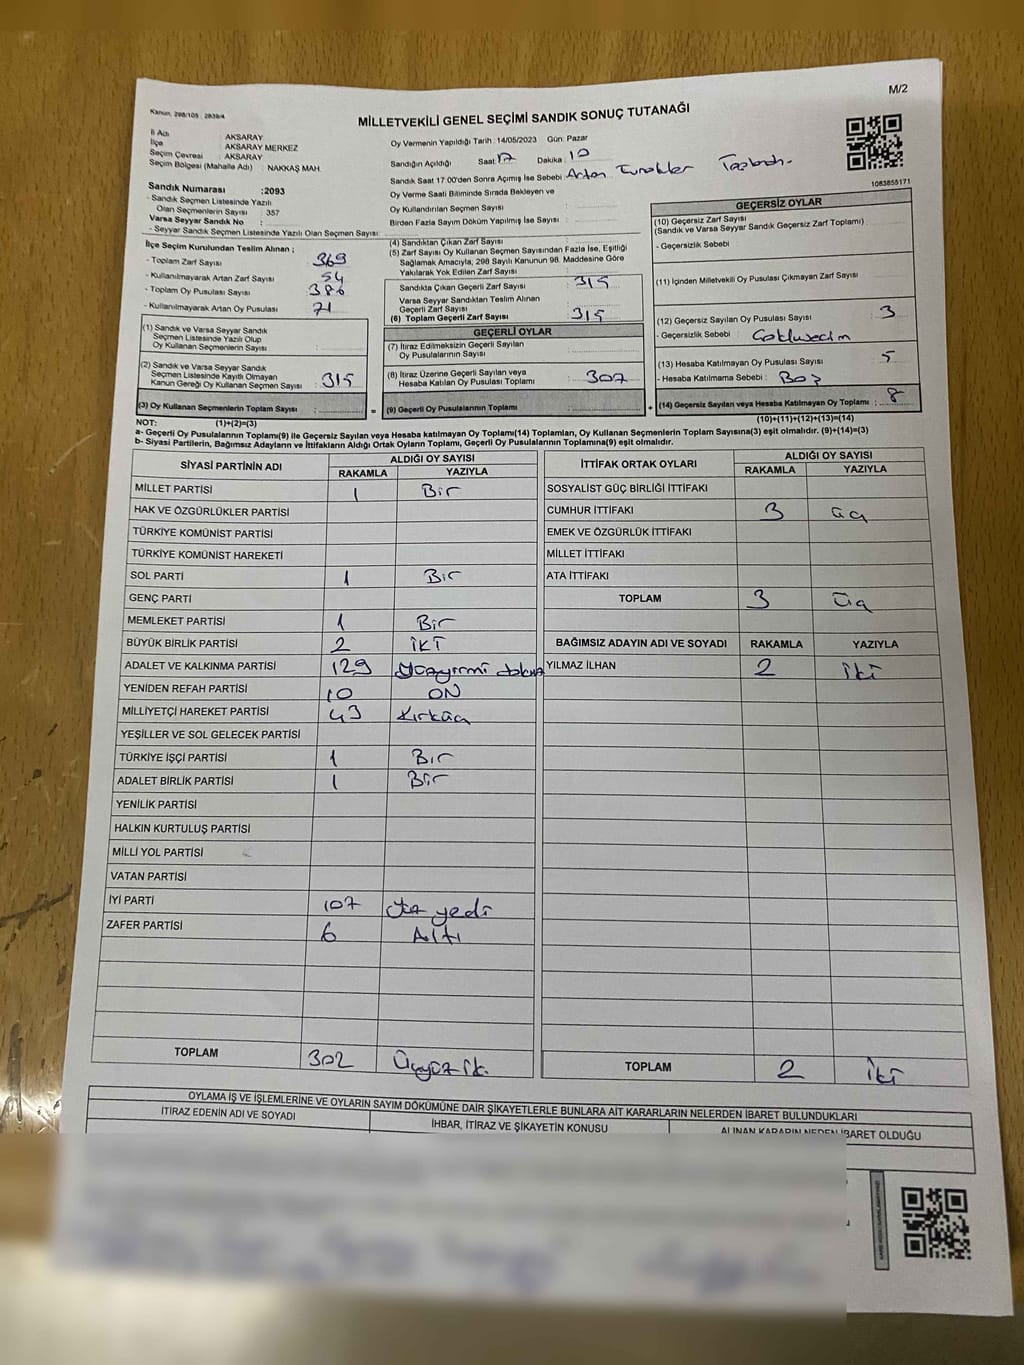 M/2
Kanun, 298/105 , 2839/4
MİLLETVEKİLİ GENEL SEÇİMİ SANDIK SONUÇ TUTANAĞI
İl Adı : AKSARAY
İlçe : AKSARAY MERKEZ
Seçim Çevresi : AKSARAY
Seçim Bölgesi (Mahalle Adı) : NAKKAŞ MAH.
Sandık Numarası :2093
- Sandık Seçmen Listesinde Yazılı
Olan Seçmenlerin Sayısı : 357
Varsa Seyyar Sandık No :
- Seyyar Sandık Seçmen Listesinde Yazılı Olan Seçmen Sayısı :
Oy Vermenin Yapıldığı Tarih : 14/05/2023 Gün: Pazar
Sandığın Açıldığı Saat 17 Dakika 10
Sandık Saat 17:00'den Sonra Açılmış İse Sebebi : Artan
Oy Verme Saati Bitiminde Sırada Bekleyen ve
Oy Kullandırılan Seçmen Sayısı :
Birden Fazla Sayım Döküm Yapılmış İse Sayısı :
1083855171
İlçe Seçim Kurulundan Teslim Alınan :
- Toplam Zarf Sayısı 369
- Kullanılmayarak Artan Zarf Sayısı 54
- Toplam Oy Pusulası Sayısı 386
- Kullanılmayarak Artan Oy Pusulası 71
(1) Sandık ve Varsa Seyyar Sandık
Seçmen Listesinde Yazılı Olup
Oy Kullanan Seçmenlerin Sayısı :
(2) Sandık ve Varsa Seyyar Sandık
Seçmen Listesinde Kayıtlı Olmayan
Kanun Gereği Oy Kullanan Seçmen Sayısı : 315
(3) Oy Kullanan Seçmenlerin Toplam Sayısı :
(4) Sandıktan Çıkan Zarf Sayısı :
(5) Zarf Sayısı Oy Kullanan Seçmen Sayısından Fazla İse, Eşitliği
Sağlamak Amacıyla; 298 Sayılı Kanunun 98. Maddesine Göre
Yakılarak Yok Edilen Zarf Sayısı :
Sandıkta Çıkan Geçerli Zarf Sayısı : 315
Varsa Seyyar Sandıktan Teslim Alınan
Geçerli Zarf Sayısı :
(6) Toplam Geçerli Zarf Sayısı : 315
GEÇERLİ OYLAR
(7) İtiraz Edilmeksizin Geçerli Sayılan
Oy Pusulalarının Sayısı :
(8) İtiraz Üzerine Geçerli Sayılan veya
Hesaba Katılan Oy Pusulası Toplamı : 307
= (9) Geçerli Oy Pusulalarının Toplamı :
GEÇERSİZ OYLAR
(10) Geçersiz Zarf Sayısı
(Sandık ve Varsa Seyyar Sandık Geçersiz Zarf Toplamı) :
- Geçersizlik Sebebi :
(11) İçinden Milletvekili Oy Pusulası Çıkmayan Zarf Sayısı :
(12) Geçersiz Sayılan Oy Pusulası Sayısı : 3
- Geçersizlik Sebebi :
(13) Hesaba Katılmayan Oy Pusulası Sayısı : 5
- Hesaba Katılmama Sebebi : Boş
+ (14) Geçersiz Sayılan veya Hesaba Katılmayan Oy Toplamı : 8
NOT: (1)+(2)=(3) (10)+(11)+(12)+(13)=(14)
a- Geçerli Oy Pusulalarının Toplamı(9) ile Geçersiz Sayılan veya Hesaba katılmayan Oy Toplamı(14) Toplamları, Oy Kullanan Seçmenlerin Toplam Sayısına(3) eşit olmalıdır. (9)+(14)=(3)
b- Siyasi Partilerin, Bağımsız Adayların ve İttifakların Aldığı Ortak Oyların Toplamı, Geçerli Oy Pusulalarının Toplamına(9) eşit olmalıdır.
SİYASİ PARTİNİN ADI ALDIĞI OY SAYISI
RAKAMLA YAZIYLA
MİLLET PARTİSİ 1 Bir
HAK VE ÖZGÜRLÜKLER PARTİSİ
TÜRKİYE KOMÜNİST PARTİSİ
TÜRKİYE KOMÜNİST HAREKETİ
SOL PARTİ 1 Bir
GENÇ PARTİ
MEMLEKET PARTİSİ 1 Bir
BÜYÜK BİRLİK PARTİSİ 2 iki
ADALET VE KALKINMA PARTİSİ 129
YENİDEN REFAH PARTİSİ 10 ON
MİLLİYETÇİ HAREKET PARTİSİ 43 Kırküç
YEŞİLLER VE SOL GELECEK PARTİSİ
TÜRKİYE İŞÇİ PARTİSİ 1 Bir
ADALET BİRLİK PARTİSİ 1 Bir
YENİLİK PARTİSİ
HALKIN KURTULUŞ PARTİSİ
MİLLİ YOL PARTİSİ
VATAN PARTİSİ
İYİ PARTİ 107 Yüz yedi
ZAFER PARTİSİ 6 Altı
TOPLAM 302 Üçyüz iki
İTTİFAK ORTAK OYLARI ALDIĞI OY SAYISI
RAKAMLA YAZIYLA
SOSYALİST GÜÇ BİRLİĞİ İTTİFAKI
CUMHUR İTTİFAKI 3 üç
EMEK VE ÖZGÜRLÜK İTTİFAKI
MİLLET İTTİFAKI
ATA İTTİFAKI
TOPLAM 3 Üç
BAĞIMSIZ ADAYIN ADI VE SOYADI RAKAMLA YAZIYLA
YILMAZ İLHAN 2 iki
TOPLAM 2 iki
OYLAMA İŞ VE İŞLEMLERİNE VE OYLARIN SAYIM DÖKÜMÜNE DAİR ŞİKAYETLERLE BUNLARA AİT KARARLARIN NELERDEN İBARET BULUNDUKLARI
İTİRAZ EDENİN ADI VE SOYADI İHBAR, İTİRAZ VE ŞİKAYETİN KONUSU ALINAN KARARIN NEDEN İBARET OLDUĞU